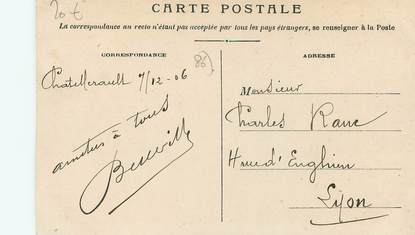 20 €
CARTE POSTALE
La correspondance au recto n'étant pas acceptée par tous les pays étrangers, se renseigner à la Poste
CORRESPONDANCE
(86)
Chatellerault 7/12-06
amitiés à tous
ADRESSE
Monsieur
Charles
H rue d'Enghien
Lyon